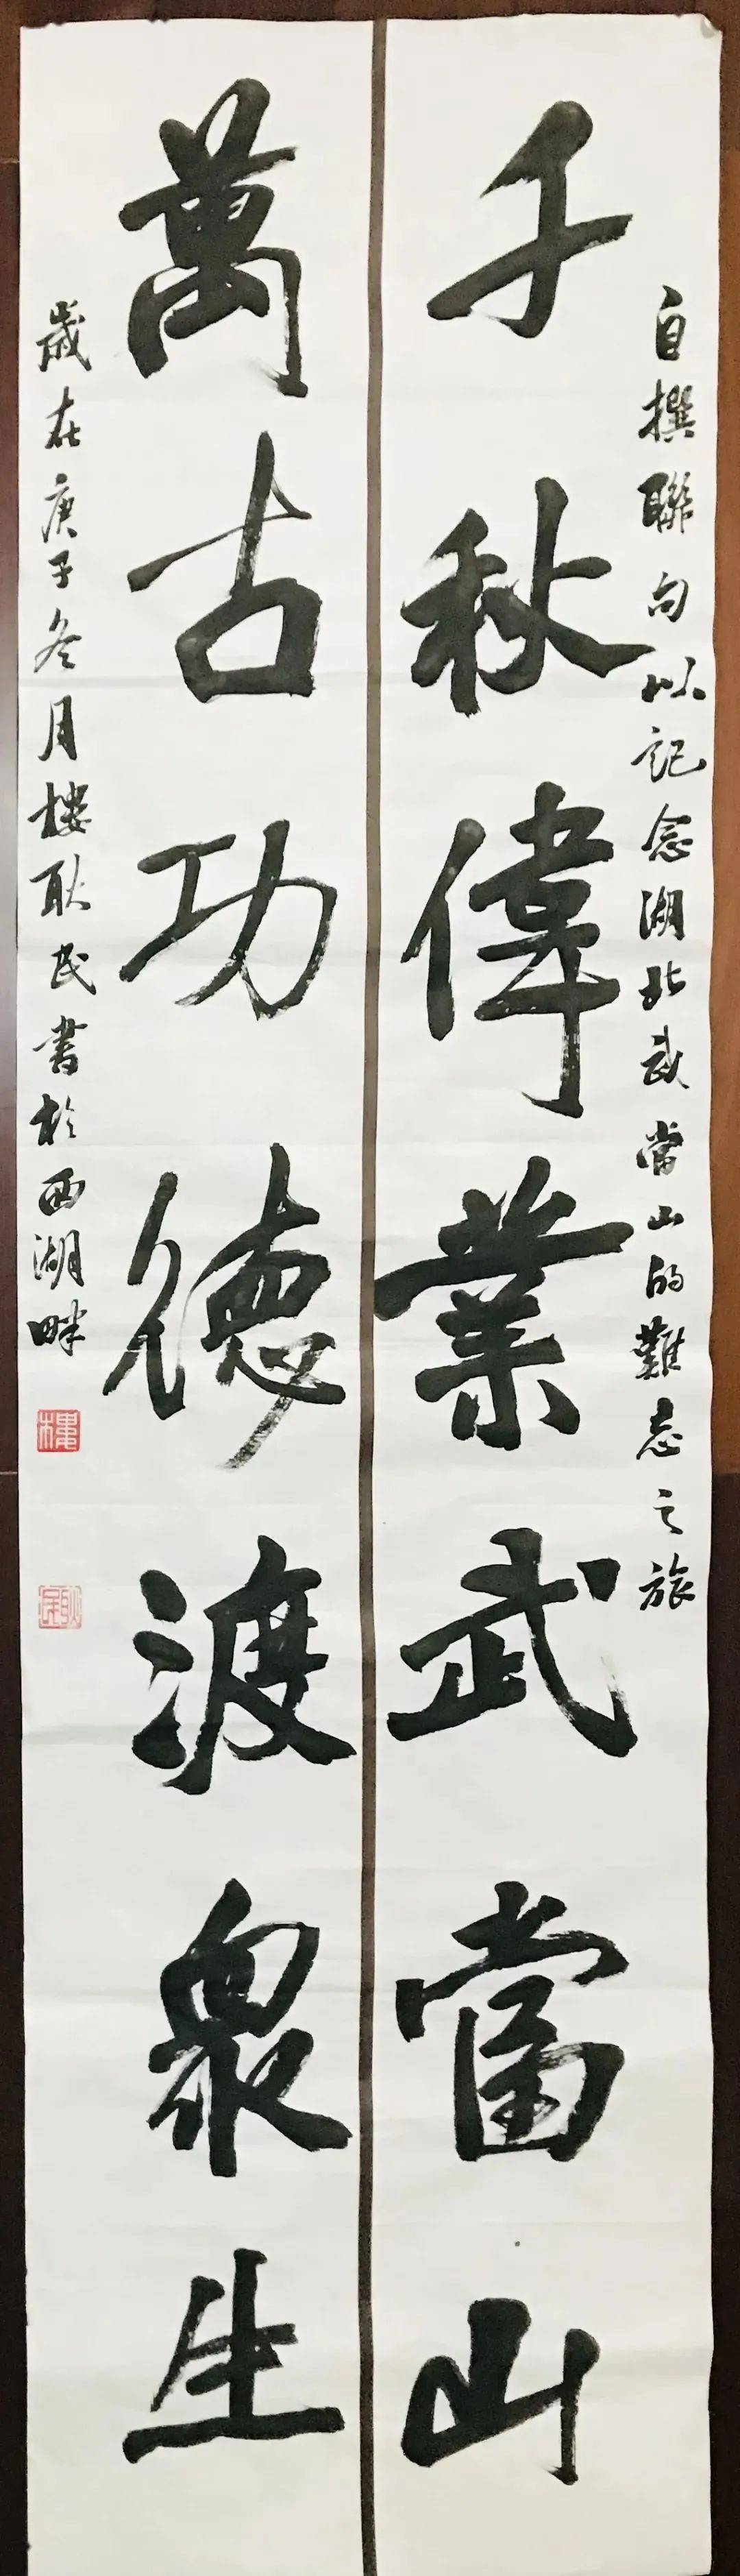 自撰聯句以記念湖北武當山的難忘之旅
千秋偉業武當山
萬古功德渡眾生
歲在庚子冬月樓耿民書於西湖畔
樓
耿民